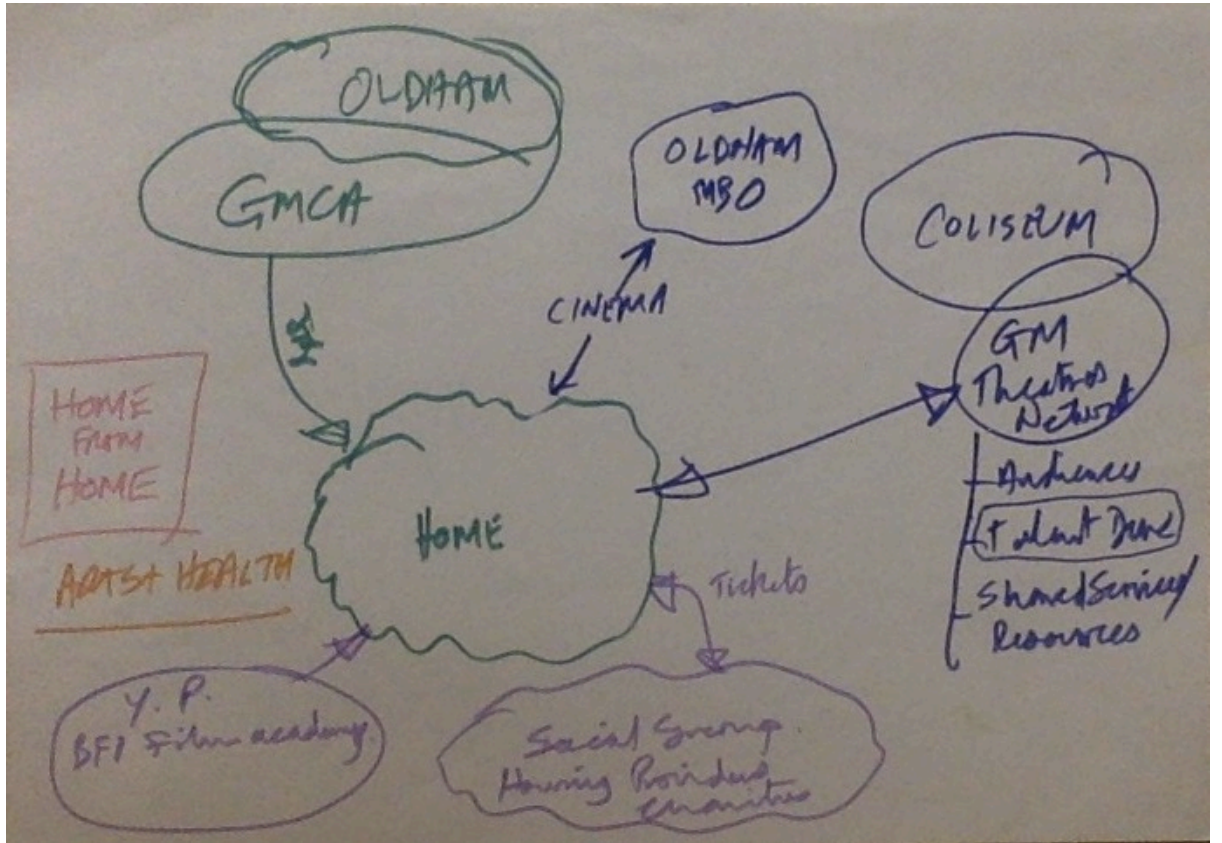 OLDHAM
GMCA
OLDHAM
MBO
COLISEUM
CINEMA
GM
Theatres
Network
Audiences
Talent
Shared Services/
Resources
HOME
FROM
HOME
HOME
ARTS + HEALTH
Tickets
Y. P.
BFI Film academy
Social Groups
Housing Providers
Charities